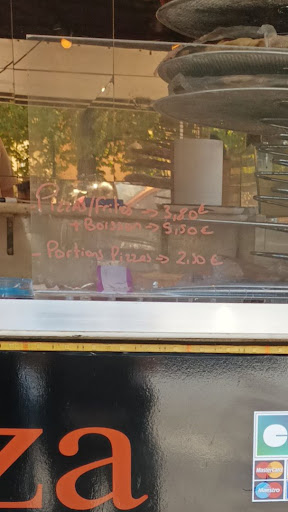 → 3,80€
+ Boisson → 5,50€
- Portions Pizzas → 2,50 €
za
MasterCard
Maestro